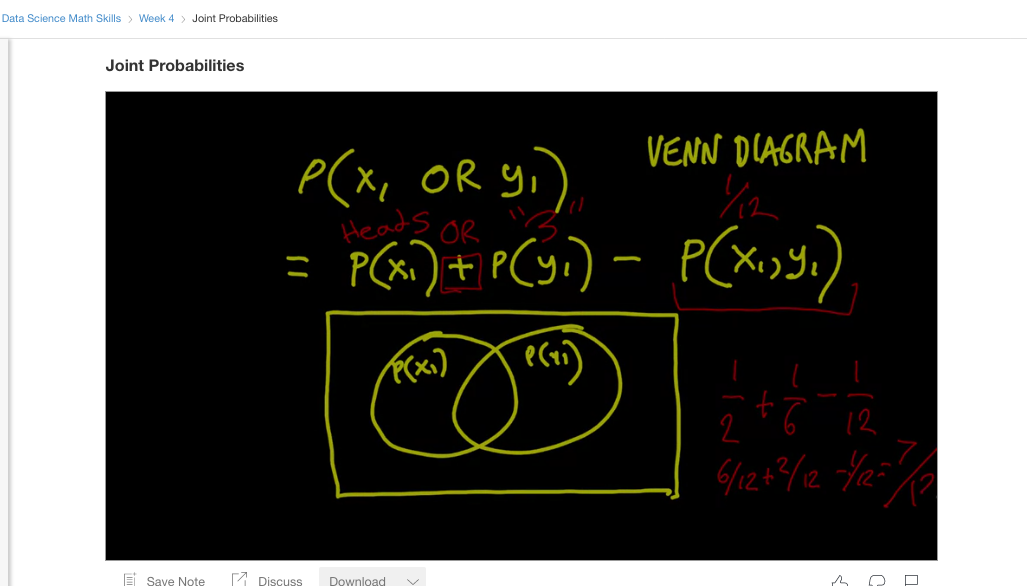 Data Science Math Skills > Week 4 > Joint Probabilities
Joint Probabilities
VENN DIAGRAM
P(x₁ OR y₁)
1/12
Heads OR "3"
= P(x₁) + P(y₁) - P(x₁,y₁)
P(x₁) P(y₁)
1/2 + 1/6 - 1/12
6/12 + 2/12 - 1/12 = 7/12
Save Note Discuss Download